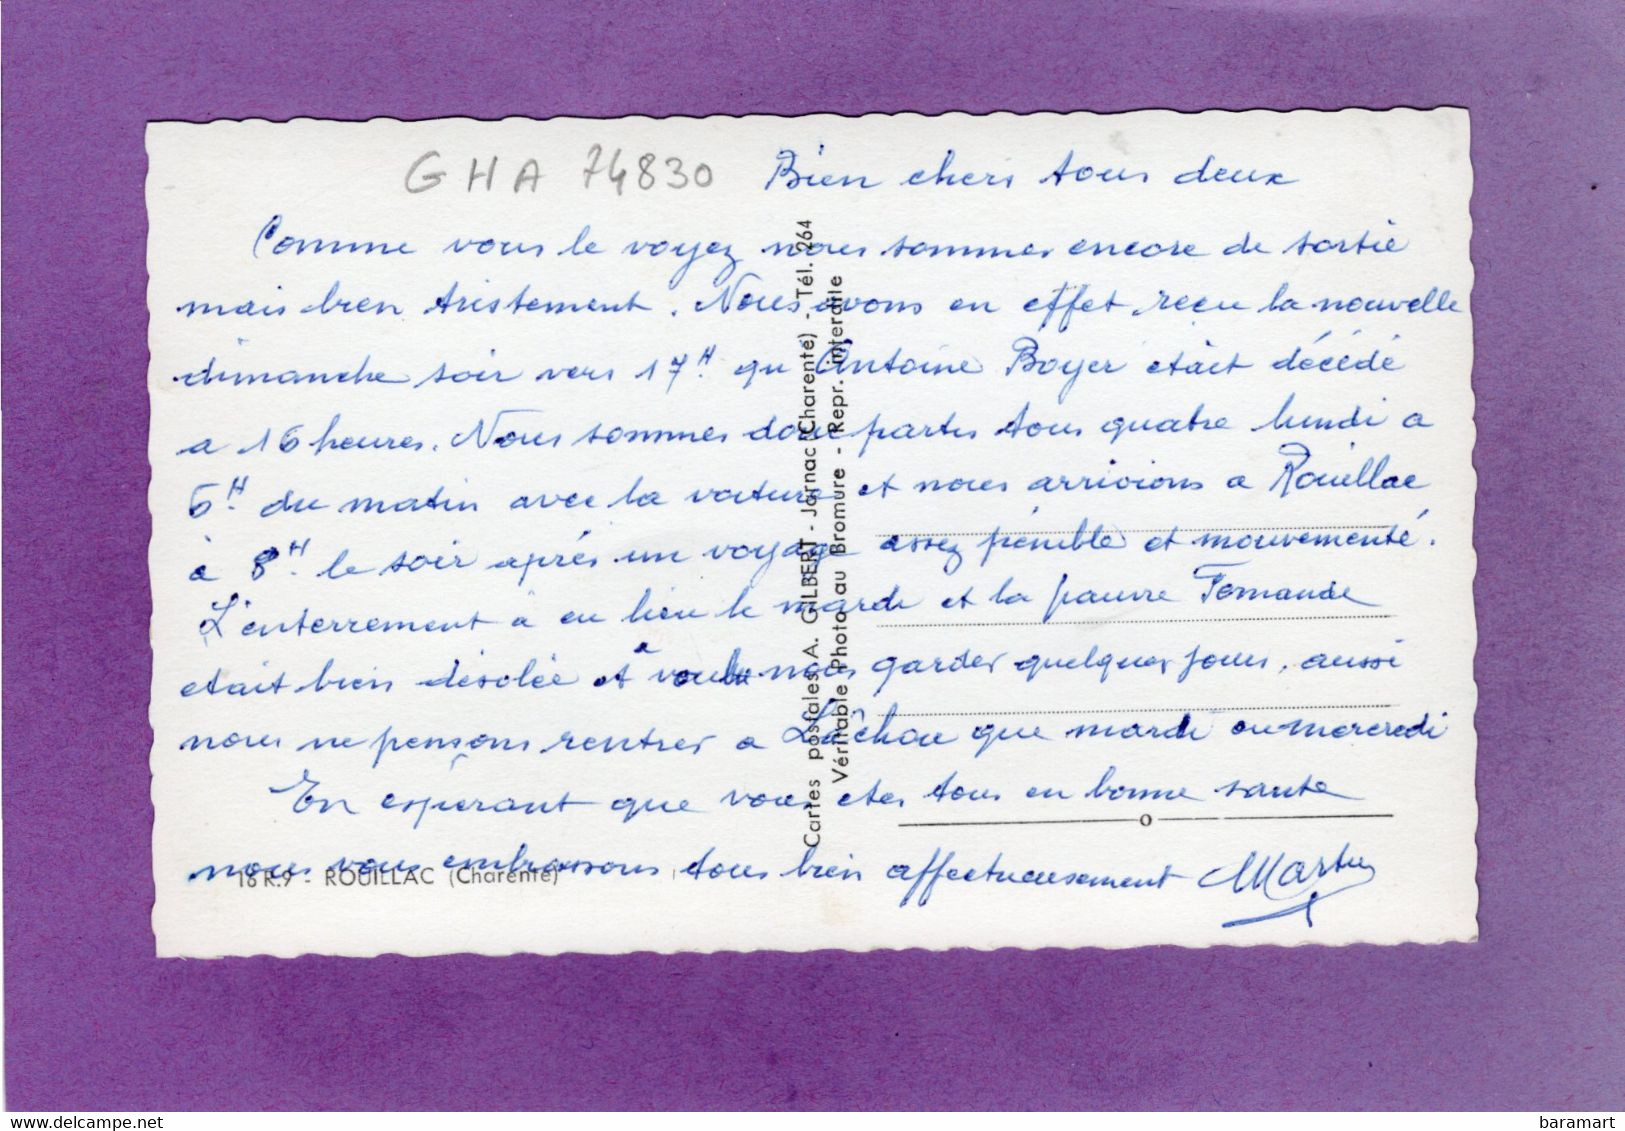 GHA 74830
Bien chers tous deux
Comme vous le voyez nous sommes encore de sortie
mais bien tristement. Nous avons en effet reçu la nouvelle
dimanche soir vers 17H. qu'Antoine Boyer était décédé
a 16 heures. Nous sommes donc partis tous quatre lundi a
6H. du matin avec la voiture et nous arrivions a Rouillac
à 8H. le soir après un voyage assez pénible et mouvementé.
L'enterrement à eu lieu le mardi et la pauvre Fernande
etait bien désolée et a voulu nous garder quelques jours, aussi
nous ne pensons rentrer a que mardi ou mercredi
En espérant que vous etes tous en bonne sante
nous vous embrassons tous bien affectueusement
Cartes postales A. GILBERT - Jarnac (Charente) - Tél. 264
Véritable Photo au Bromure - Repr. interdite
16 R.9 - ROUILLAC (Charente)
baramart